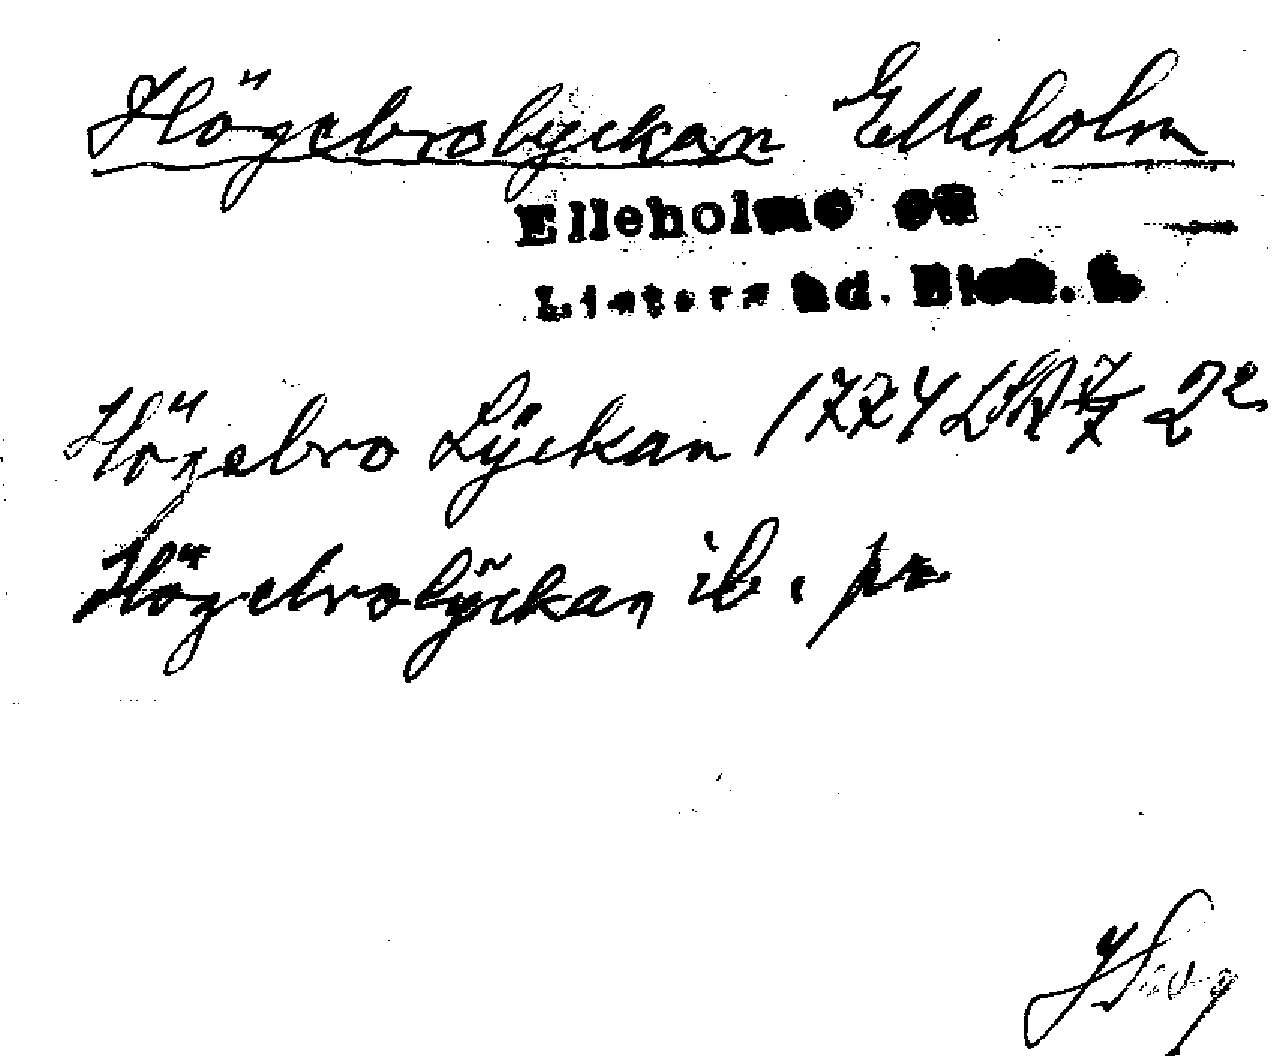 Högebrolyckan Elleholm
Elleholms sn
Listers hd. Blek. l.
Högebro Lÿckan 1774 LSA
Högebrolÿckan ib.